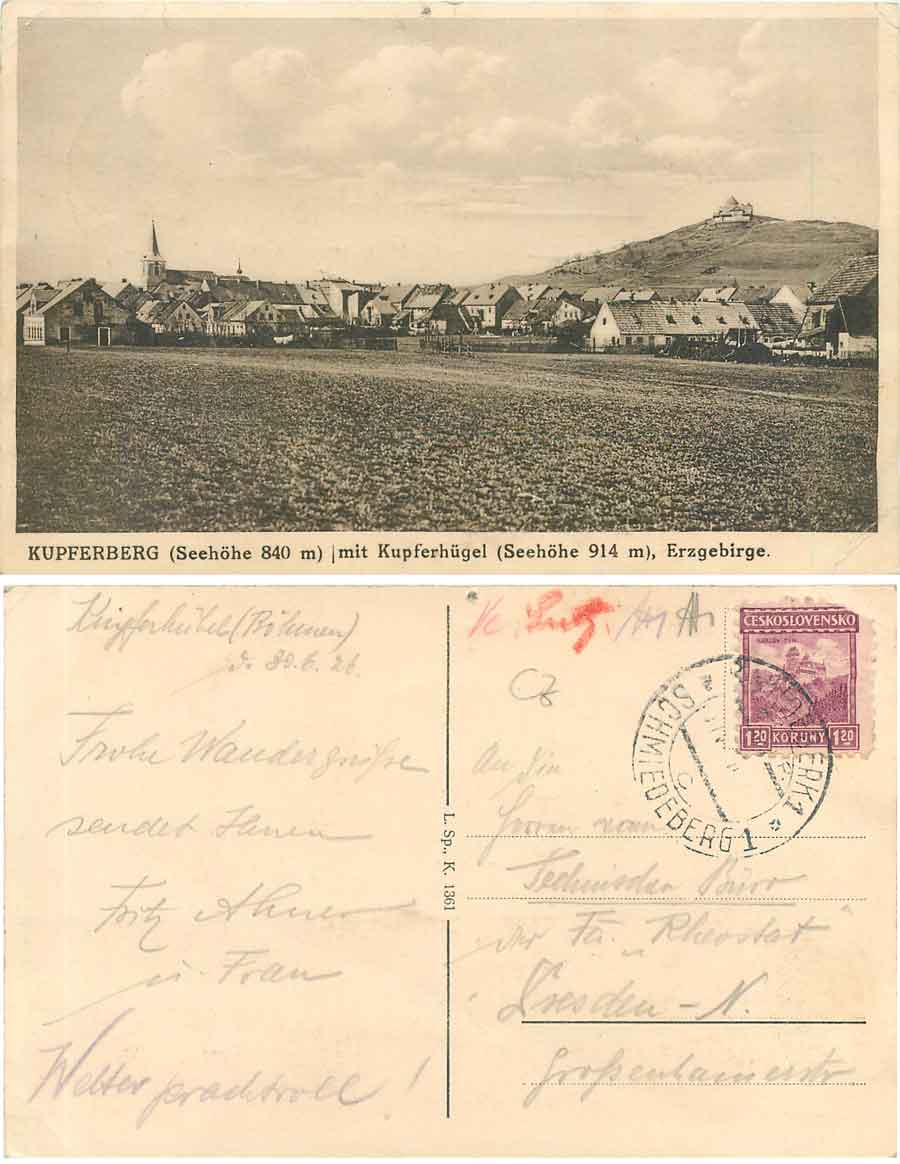 KUPFERBERG (Seehöhe 840 m) mit Kupferhügel (Seehöhe 914 m), Erzgebirge.
Kupferhübel (Böhmen)
d. 30.6.26.
Frohe Wandergrüße
sendet Ihnen
Fritz Ahner
u. Frau
Wetter prachtvoll!
L. Sp., K. 1361
ČESKOSLOVENSKO
1.20 KORUNY 1.20
SCHMIEDEBERG 1
An die
Herren vom
Technischen Büro
der Fa. „Rheostat"
Dresden-N.
Großenhainerstr